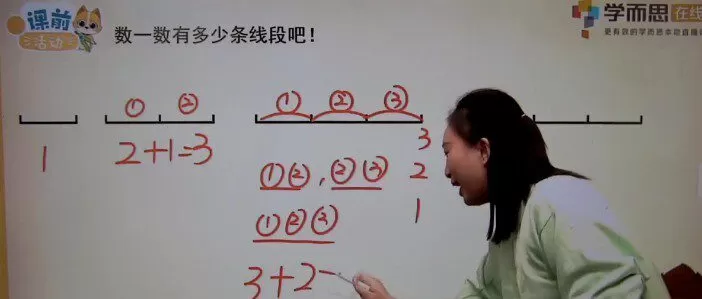 课前
活动
数一数有多少条线段吧！
学而思 在线
更有效的学而思本助直播
① ②
① ② ③
1
2+1=3
3
2
1
①②，②③
①②③
3+2